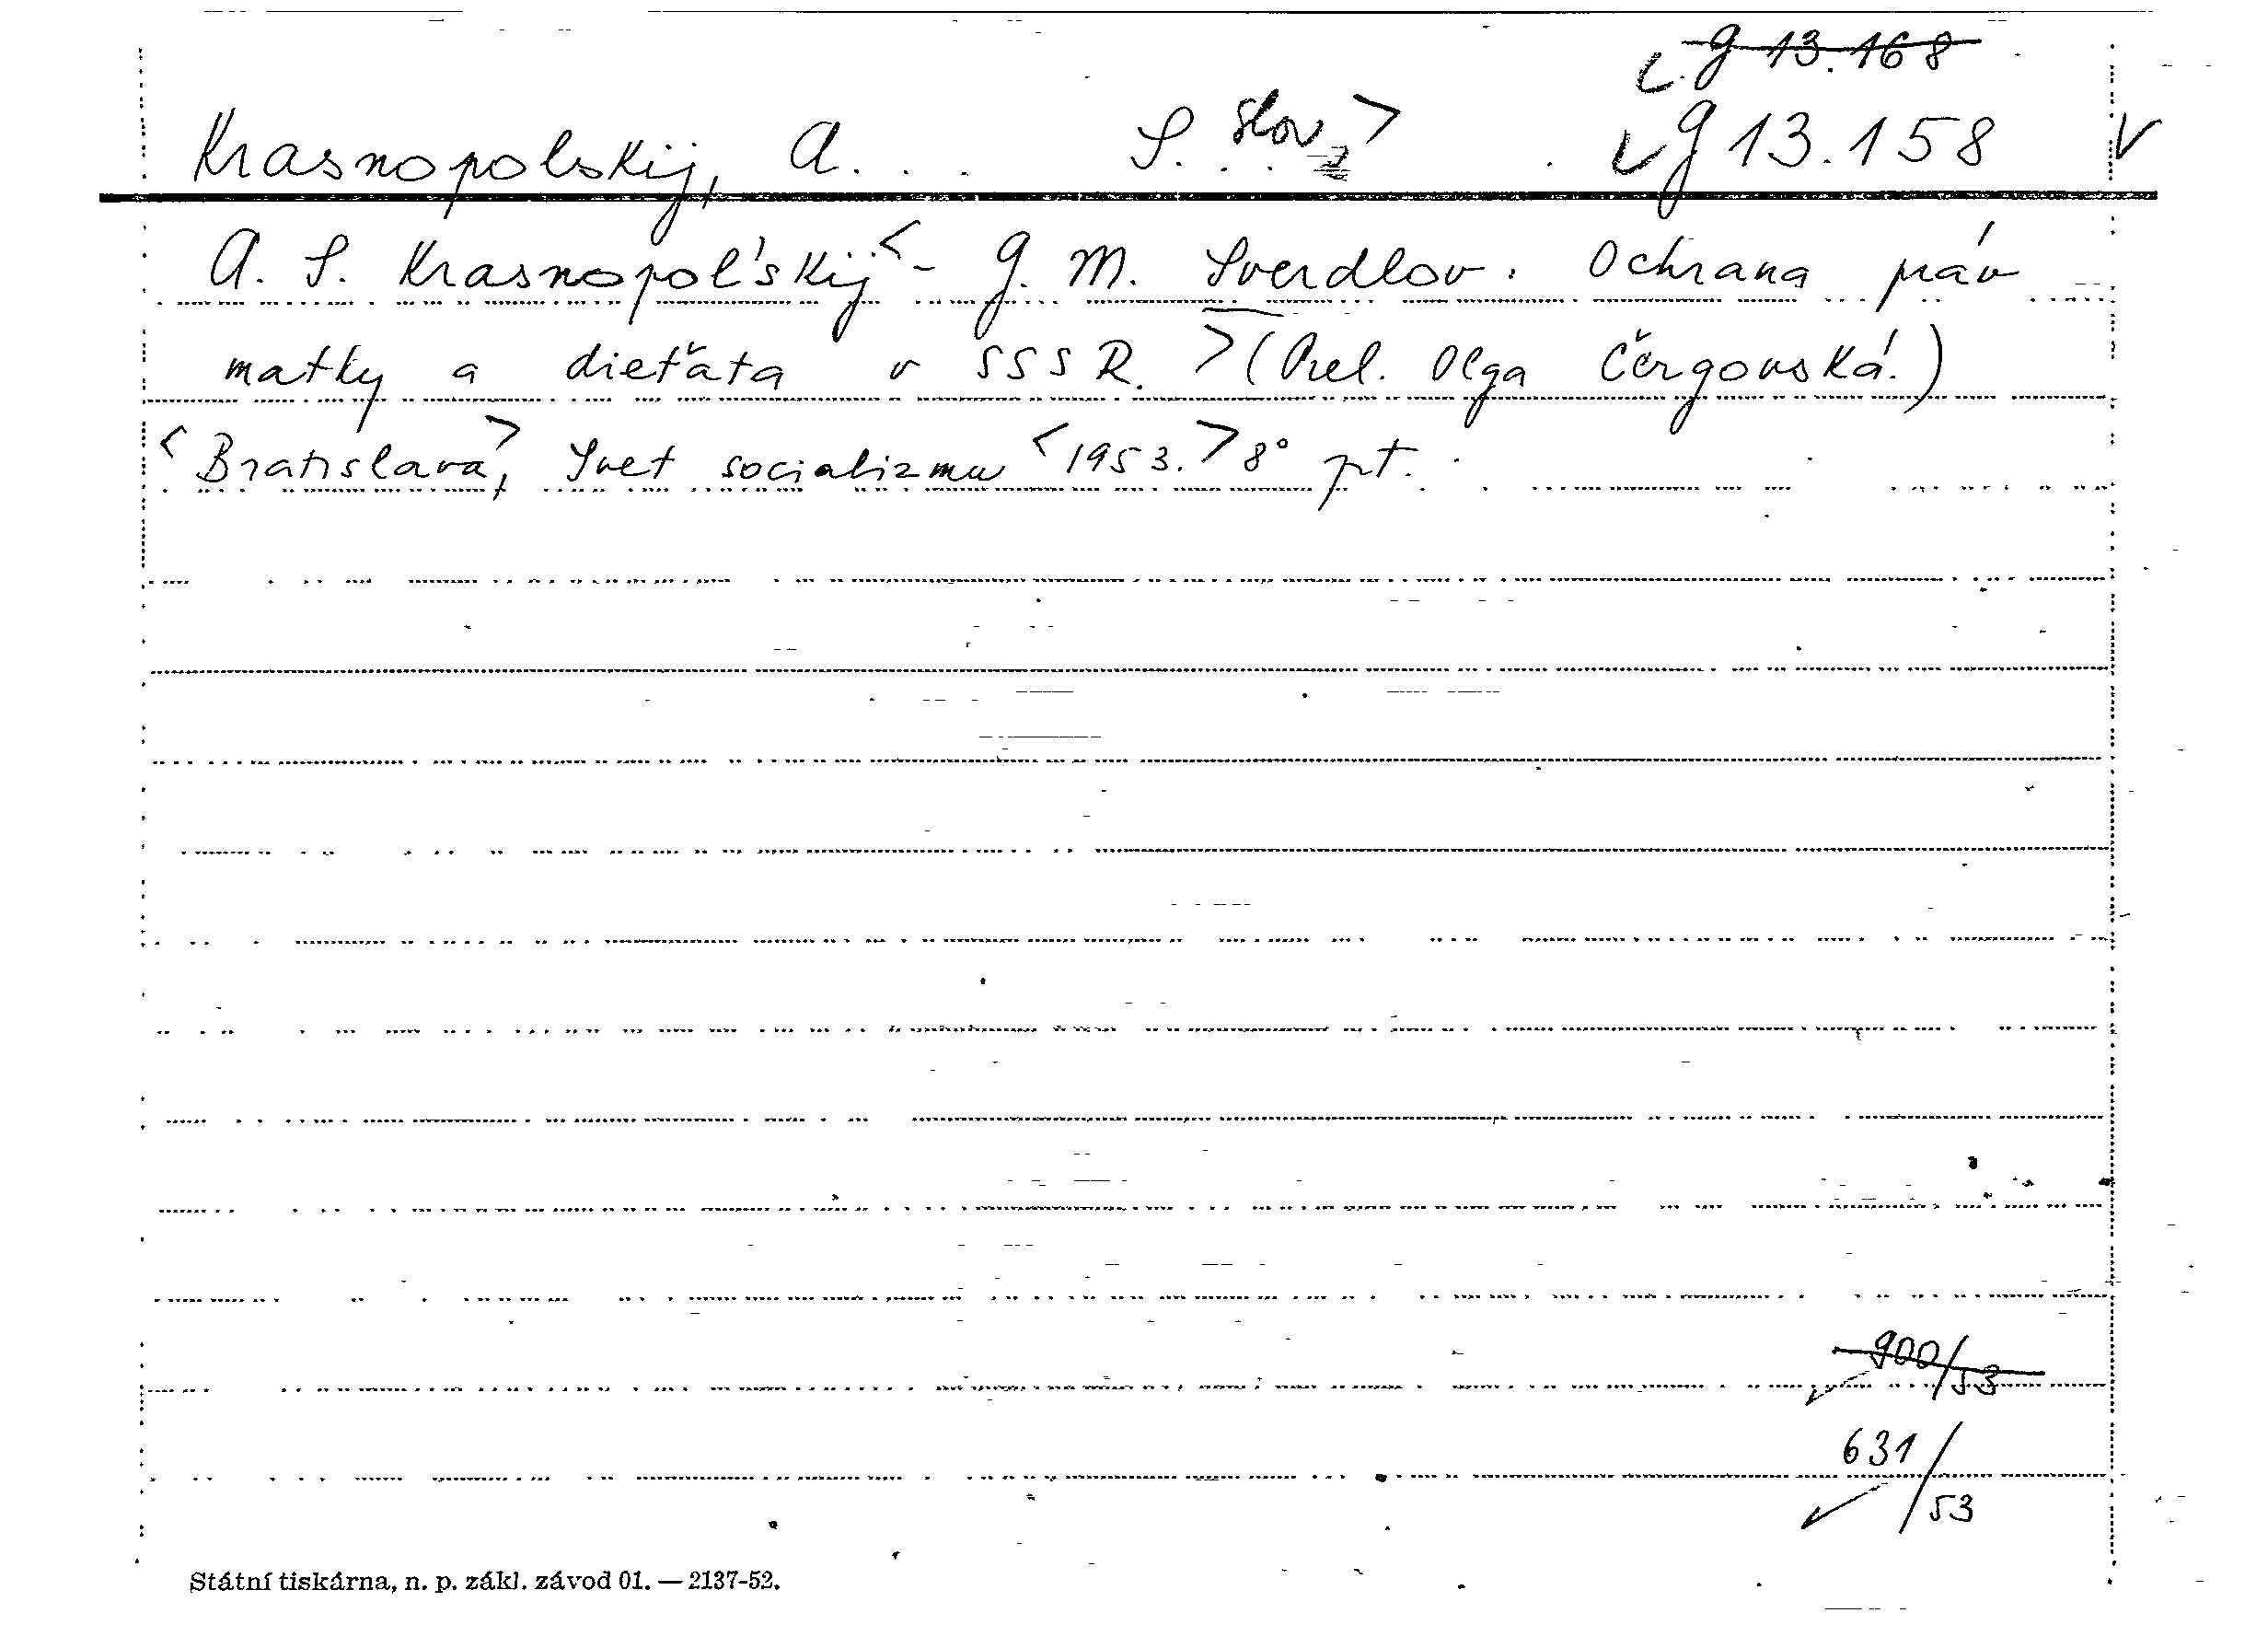 g 13.168
Krasnopolskij, A. S. slov > g 13.158 V
A. S. Krasnopol'skij < - G. M. Sverdlov: Ochrana práv
matky a dieťaťa v SSSR. > (Prel. Oľga Čergovská.)
< Bratislava >, Svet socializmu < 1953. > 8° pt.
900/53
631/53
Státní tiskárna, n. p. zákl. závod 01. — 2137-52.